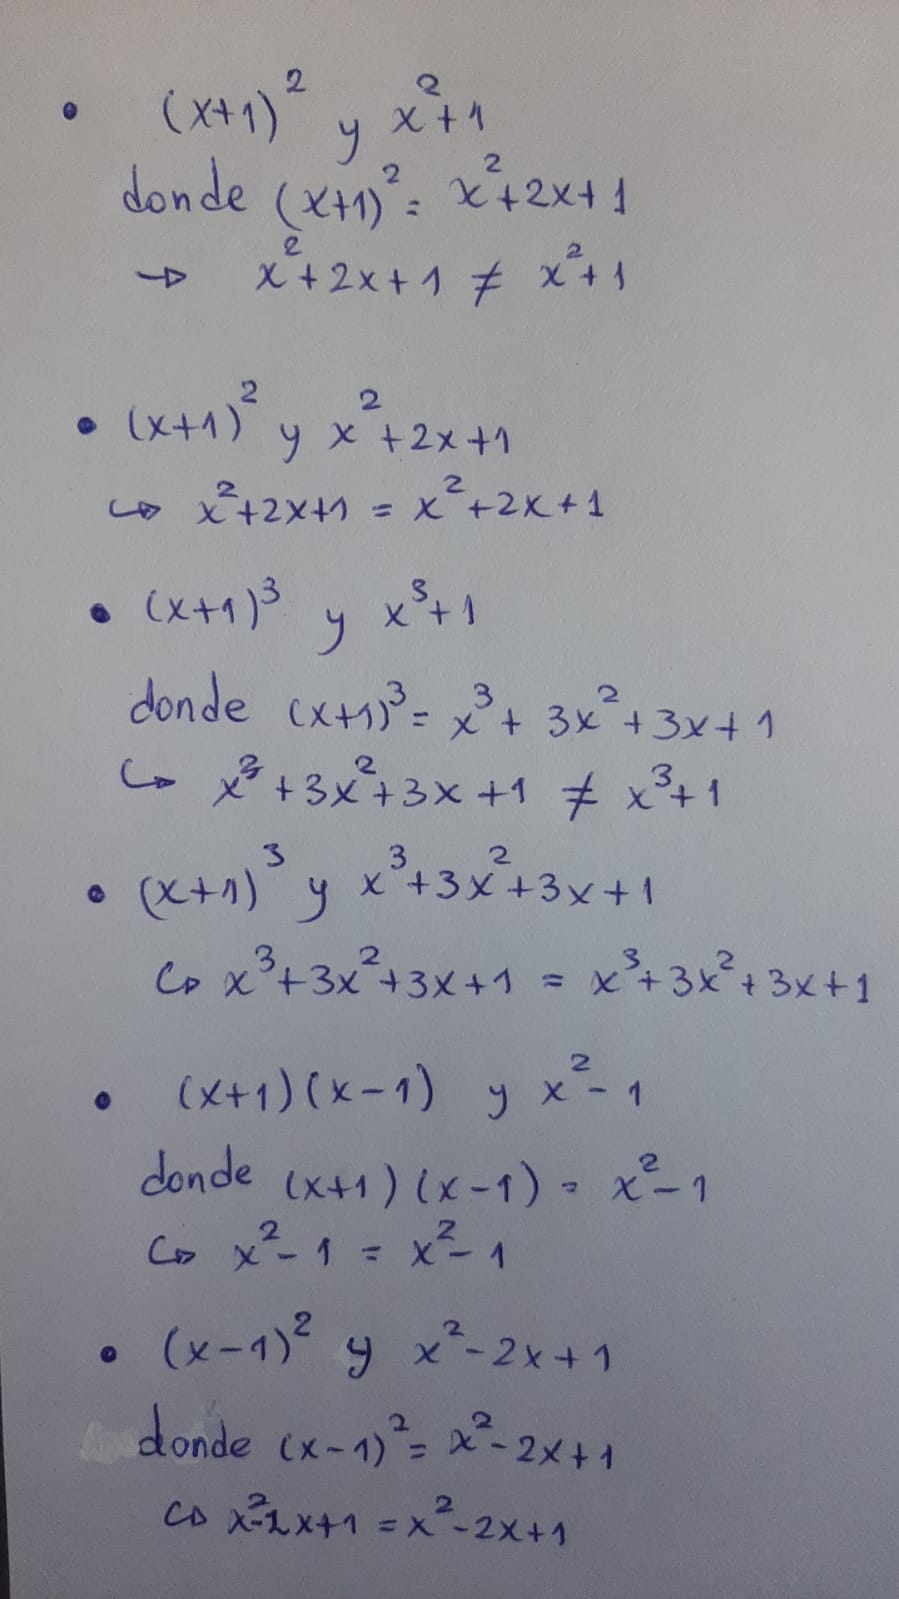 • (x+1)² y x²+1
donde (x+1)² = x²+2x+1
→ x²+2x+1 ≠ x²+1
• (x+1)² y x²+2x+1
↪ x²+2x+1 = x²+2x+1
• (x+1)³ y x³+1
donde (x+1)³ = x³+3x²+3x+1
↪ x³+3x²+3x+1 ≠ x³+1
• (x+1)³ y x³+3x²+3x+1
↪ x³+3x²+3x+1 = x³+3x²+3x+1
• (x+1)(x-1) y x²-1
donde (x+1)(x-1) = x²-1
↪ x²-1 = x²-1
• (x-1)² y x²-2x+1
donde (x-1)² = x²-2x+1
↪ x²-2x+1 = x²-2x+1